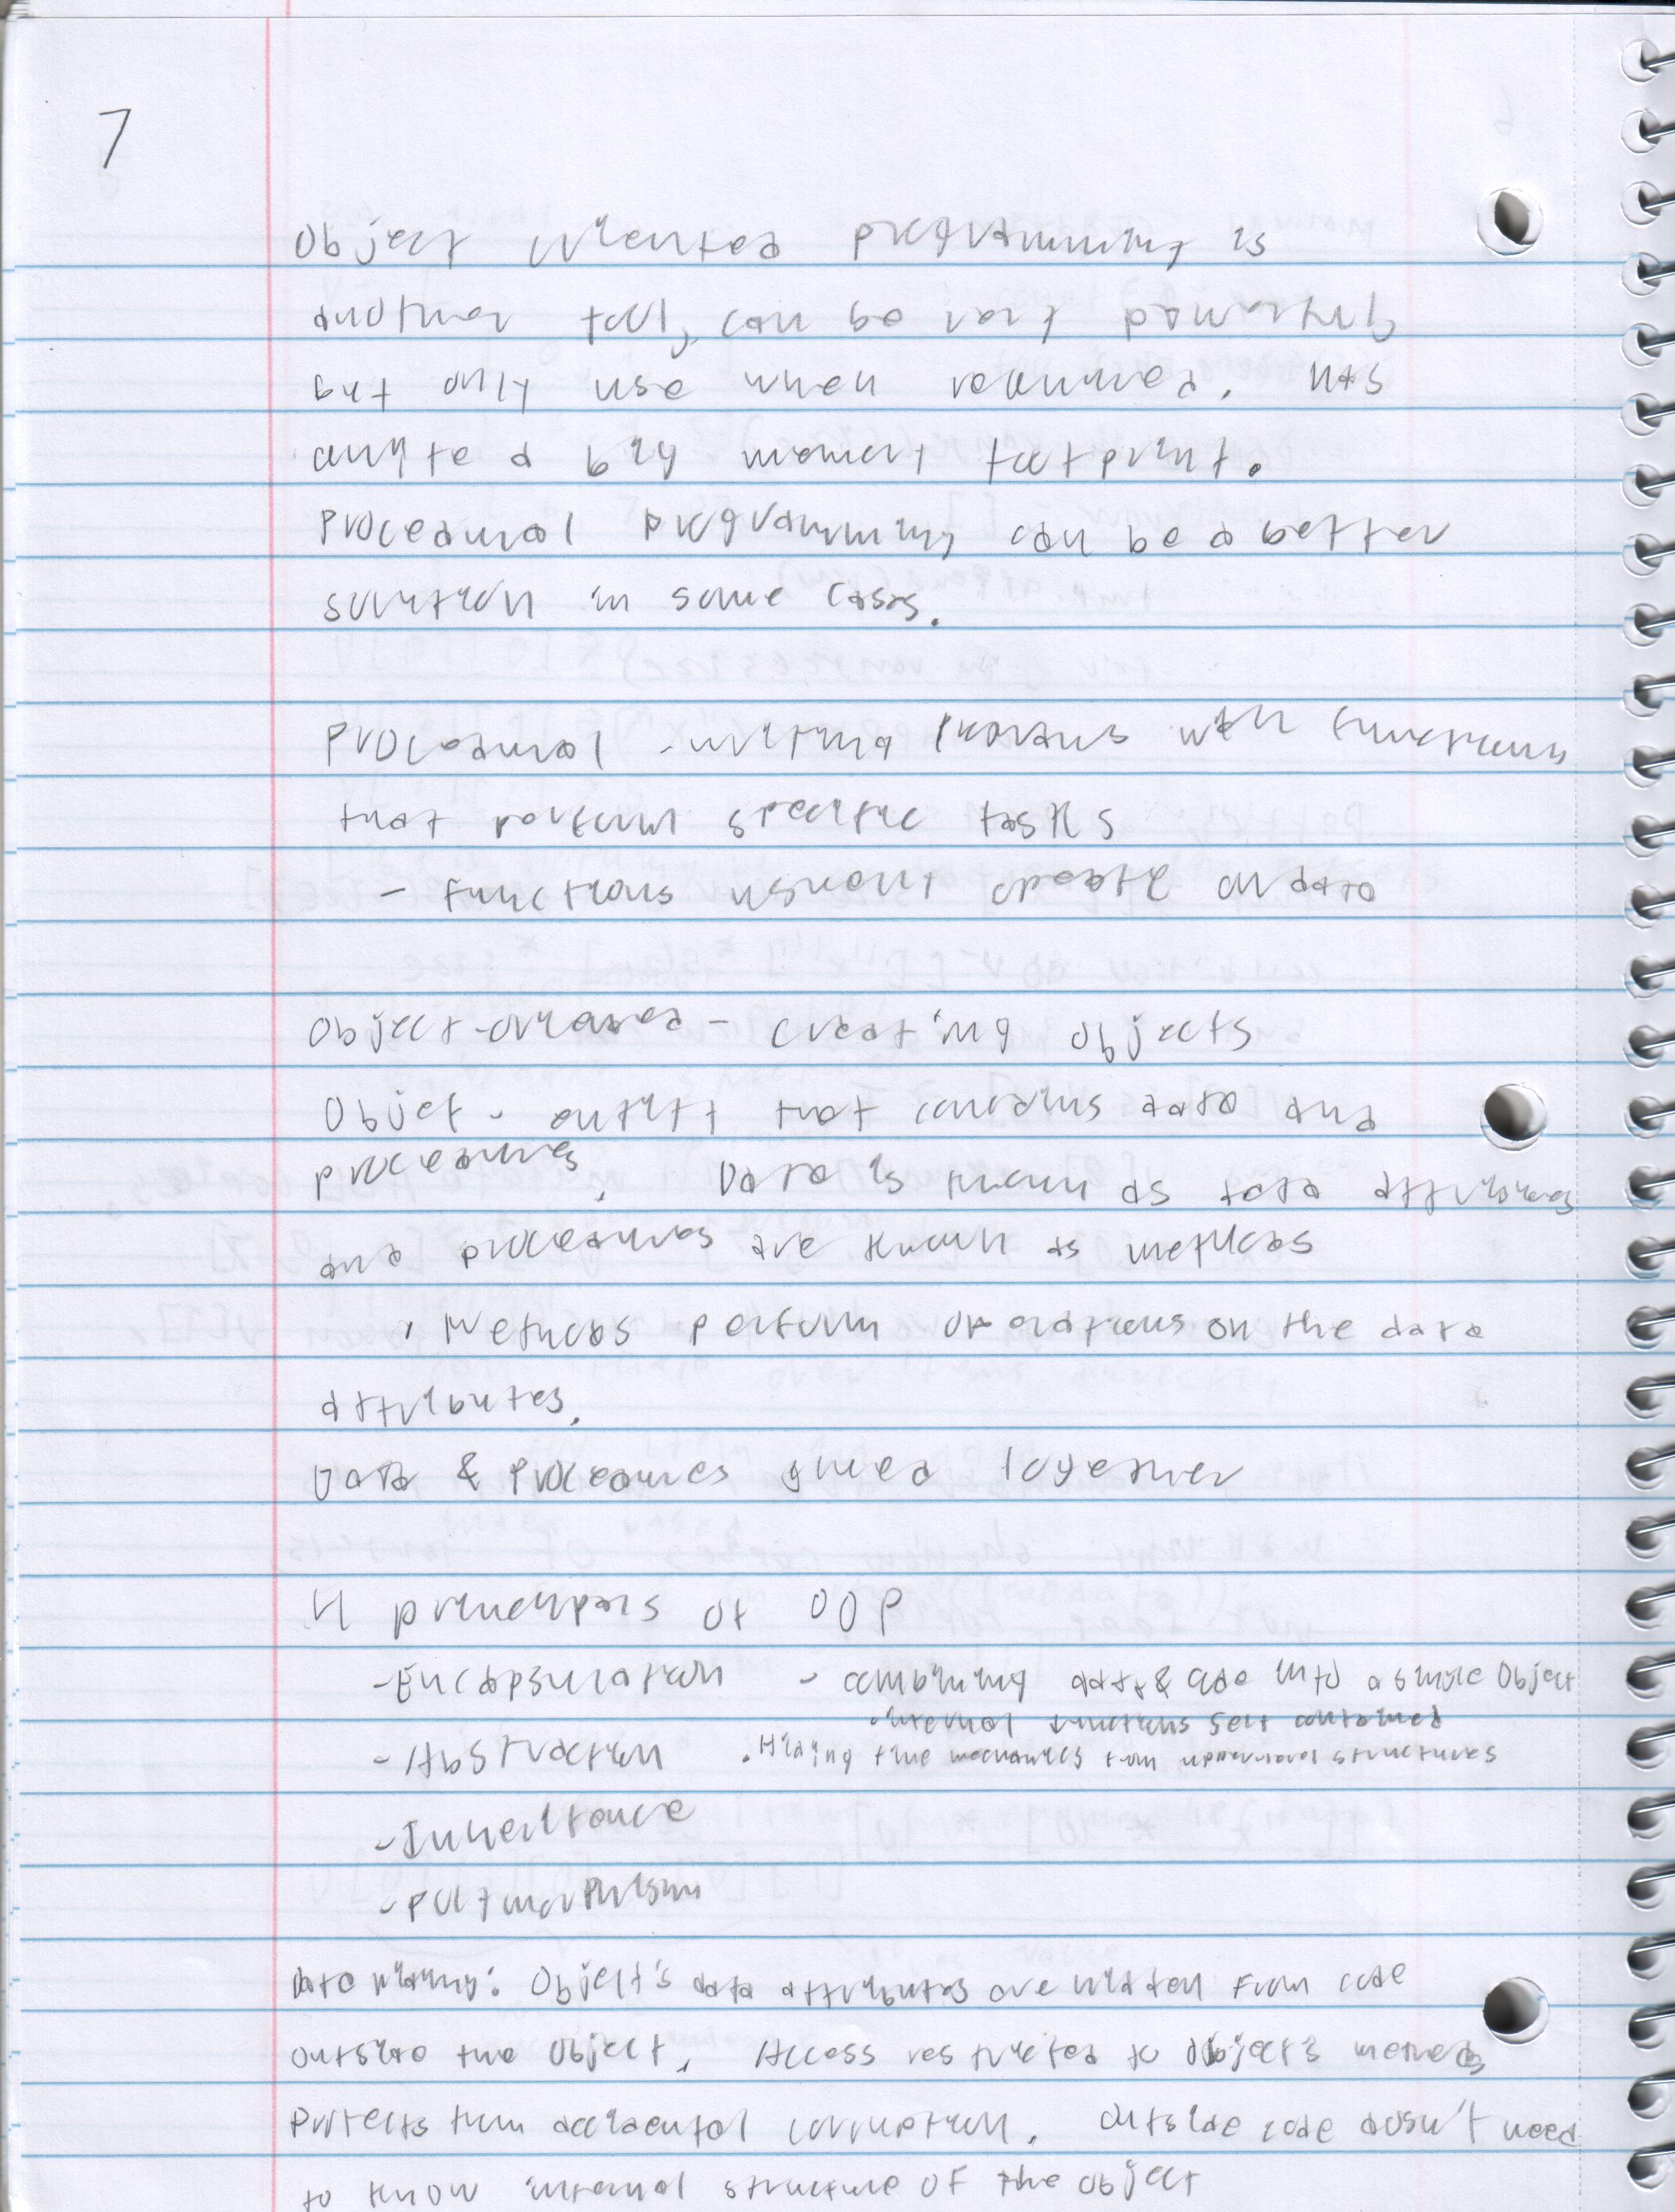 7
Object oriented programming is
another tool, can be very powerful
but only use when required. Has
quite a big memory footprint.
Procedural programming can be a better
solution in some cases.
Procedural - writing programs with functions
that perform specific tasks
- functions usually operate on data
Object-oriented - creating objects
Object - entity that contains data and
procedures. Data is known as data attributes
and procedures are known as methods
· Methods perform operations on the data
attributes.
Data & Procedures glued together
4 principles of OOP
- Encapsulation - combining data & code into a single object
· internal functions self contained
- Abstraction · Hiding the mechanics from structures
- Inheritance
- Polymorphism
Data hiding: Object's data attributes are hidden from code
outside the object. Access restricted to object's methods
Protects from accidental corruption. Outside code doesn't need
to know internal structure of the object